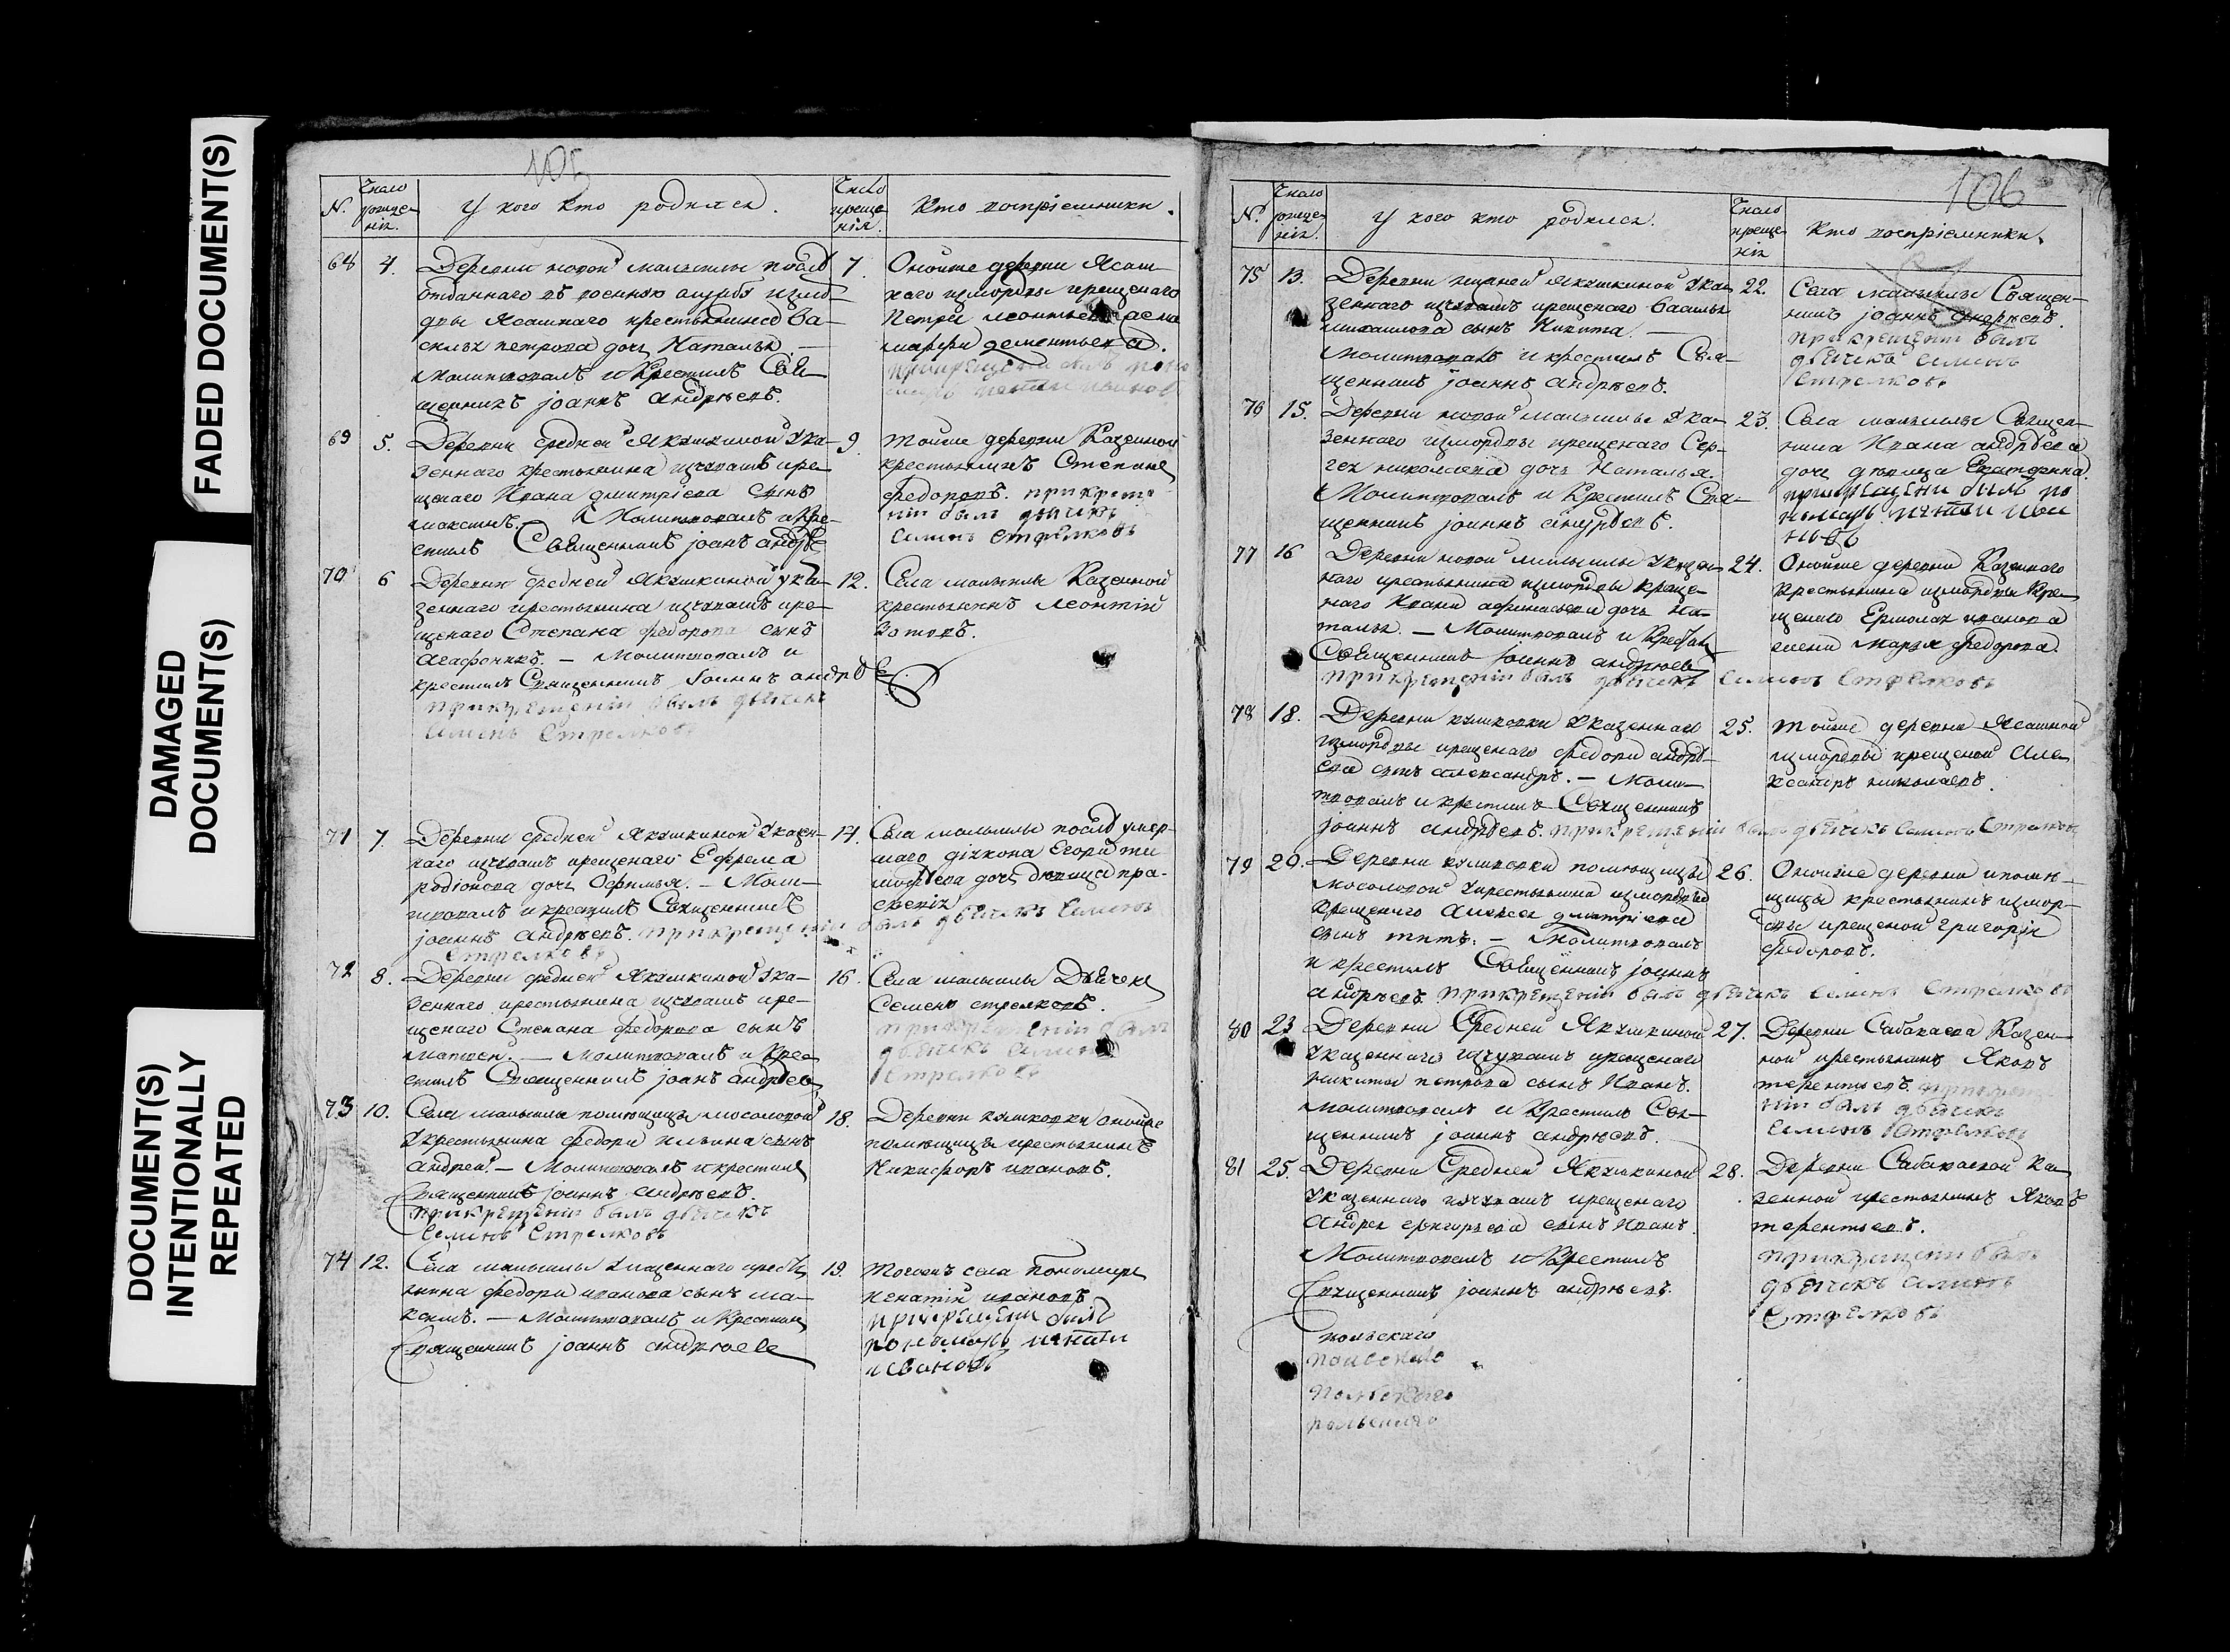 FADED DOCUMENT(S)
DAMAGED
DOCUMENT(S)
DOCUMENT(S)
INTENTIONALLY
REPEATED
105
N.
Число
рожде-
нія.
У кого кто родился.
Число
креще-
нія.
Кто воспріемники.
68 4.
Деревни новой малыклы послѣ
отданнаго въ военною службу измо-
рдвы Ясашнаго крестьянина Ва-
силья петрова дочь Наталья. —
Молитвовалъ и Крестилъ Свя-
щенникъ іоаннъ андрѣевъ.
7.
Оной же деревни Ясаш-
наго измордвы крещенаго
Петра леонтьева жена
марфа дементьева.
69 5.
Деревни средней Якушкиной Ука-
зеннаго крестьянина изчувашъ кре-
щенаго Ивана дмитріева сынъ
максимъ. Молитвовалъ и Кре-
стилъ Священникъ іоанъ андрѣе
9.
Тойже деревни Казенной
крестьянинъ Степанъ
федоровъ. при креще-
ніи былъ дьячекъ
Семенъ Стрелковъ
70 6
Деревни средней Якушкиной ука-
зеннаго крестьянина изчувашъ кре-
щенаго Степана федорова сынъ
Агафоникъ. — Молитвовалъ и
крестилъ Священникъ Іоаннъ андрѣе
при крещеніи былъ дьячекъ
Семенъ Стрелковъ
12.
Села малыклы Казенной
крестьянинъ Леонтій
Зотовъ.
71 7.
Деревни средней Якушкиной Указен-
наго изчувашъ крещенаго Ефрема
родіонова дочь Офимья. — Моли-
твовалъ и крестилъ Священникъ
іоаннъ андрѣевъ. при крещеніи былъ дьячекъ Семенъ
Стрелковъ
14.
Села малыклы послѣ умер-
шаго діякона Егора ти-
мофѣева дочь дѣвица пра-
сковія
72 8.
Деревни средней Якушкиной Ука-
зеннаго крестьянина изчувашъ кре-
щенаго Степана федорова сынъ
матвей. — Молитвовалъ и Кре-
стилъ Священникъ іоанъ андрѣевъ
16.
Села малыклы Дьячекъ
Семенъ стрелковъ.
при крещеніи былъ
дьячекъ Семенъ
Стрелковъ
73 10.
Села малыклы помѣщицы мосоловой
Укрестьянина федора ильина сынъ
Андрей. — Молитвовалъ и крестилъ
Священникъ іоаннъ андрѣевъ.
при крещеніи былъ дьячекъ
Семенъ Стрелковъ
18.
Деревни кушковки оной же
помѣщицы крестьянинъ
Никифоръ ивановъ.
74 12.
Села малыклы Указеннаго кресть-
янина федора иванова сынъ ма-
ксимъ. — Молитвовалъ и Крестилъ
Священникъ іоаннъ андрѣевъ
19.
Тогожъ села пономарь
игнатій ивановъ
при крещени былъ
пономарь игнати
ивановъ
106
N.
Число
рожде-
нія.
У кого кто родился.
Число
креще-
нія
Кто воспріемники.
75 13.
Деревни нижней Якушкиной Ука-
зеннаго изчувашъ крещенаго Василья
михаилова сынъ Никита. —
Молитвовалъ и крестилъ Свя-
щенникъ іоаннъ андрѣевъ.
22.
Села малыклы Священ-
никъ іоаннъ андрѣевъ.
при крещеніи былъ
дьячекъ Семенъ
Стрелковъ
76 15.
Деревни новой малыклы Ука-
зеннаго измордвы крещенаго Сер-
гея николаева дочь Наталья.
Молитвовалъ и Крестилъ Свя-
щенникъ іоаннъ андрѣевъ.
23.
Села малыклы Священ-
ника Ивана андрѣева
дочь дѣвица Екатерина.
при крещени былъ по
номарь игнати ива
новъ
77 16
Деревни новой малыклы Указен-
наго крестьянина измордвы креще-
наго Ивана афанасьева дочь На-
талья. — Молитвовалъ и Крестилъ
Священникъ Іоаннъ андрѣевъ
при крещеніи былъ дьячекъ Семенъ Стрелковъ
24.
Оной же деревни Казеннаго
Крестьянина измордвы Кре-
щенаго Ермолая иванова
жена Марья федорова.
78 18.
Деревни кушковки Указеннаго
измордвы крещенаго федора андрѣ-
ева сынъ александръ. — Моли-
твовалъ и крестилъ Священникъ
іоаннъ андрѣевъ. при крещеніи былъ дьячекъ Семенъ Стрелковъ
25.
Тойже деревни Ясашной
измордвы крещеной Але-
ксандръ николаевъ.
79 20.
Деревни кушковки помѣщицы
мосоловой Укрестьянина измордвы
крещенаго Алексея дмитріева
сынъ титъ. — Молитвовалъ
и крестилъ Священникъ іоаннъ
андрѣевъ при крещеніи былъ дьячекъ Семенъ Стрелковъ
26.
Оной же деревни и помѣ-
щицы крестьянинъ измор-
двы крещеной григорій
федоровъ.
80 23
Деревни Средней Якушкиной
Указеннаго изчувашъ крещенаго
никиты петрова сынъ Иванъ.
Молитвовалъ и Крестилъ Свя-
щенникъ іоаннъ андрѣевъ.
27.
Деревни Сабакаева Казен-
ной крестьянинъ Яковъ
терентьевъ. при креще-
ніи былъ дьячекъ
Семенъ Стрелковъ
81 25.
Деревни Средней Якушкиной
Указеннаго изчувашъ крещенаго
Андрея григорьева сынъ Иванъ.
Молитвовалъ и Крестилъ
Священникъ іоаннъ андрѣевъ.
28.
Деревни Сабакаевой Ка-
зенной крестьянинъ Яковъ
терентьевъ.
при крещени былъ
дьячекъ Семенъ
Стрелковъ